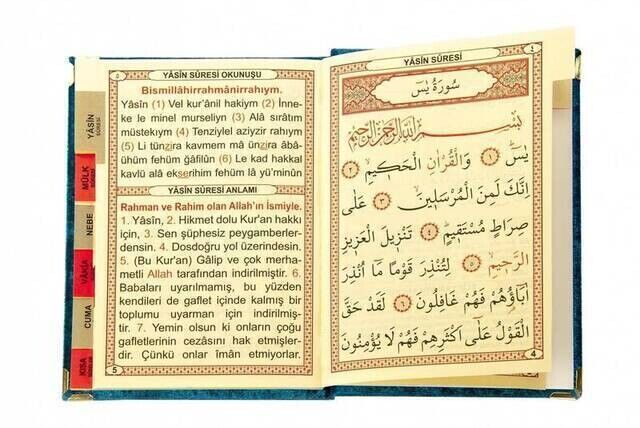 YÂSİN SÛRESİ
٤
سُورَةُ يٰسٓ
بِسْمِ اللّٰهِ الرَّحْمٰنِ الرَّحِيمِ
يٰسٓ ﴿١﴾ وَالْقُرْاٰنِ الْحَكٖيمِ ﴿٢﴾
اِنَّكَ لَمِنَ الْمُرْسَلٖينَ ﴿٣﴾ عَلٰى
صِرَاطٍ مُسْتَقٖيمٍ ﴿٤﴾ تَنْزٖيلَ الْعَزٖيزِ
الرَّحٖيمِ ﴿٥﴾ لِتُنْذِرَ قَوْمًا مَٓا اُنْذِرَ
اٰبَٓاؤُ۬هُمْ فَهُمْ غَافِلُونَ ﴿٦﴾ لَقَدْ حَقَّ
الْقَوْلُ عَلٰٓى اَكْثَرِهِمْ فَهُمْ لَا يُؤْمِنُونَ
4
٥
YÂSİN SÛRESİ OKUNUŞU
Bismillâhirrahmânirrahıym.
Yâsîn (1) Vel kur'ânil hakiym (2) İnne-
ke le minel murseliyn (3) Alâ sırâtım
müstekıym (4) Tenziylel aziyzir rahıym
(5) Li tünzira kavmem mâ ünzira âbâ-
ühüm fehüm ğâfilûn (6) Le kad hakkal
kavlü alâ ekserihim fehüm lâ yü'minûn
YÂSİN SÛRESİ ANLAMI
Rahman ve Rahim olan Allah'ın İsmiyle.
1. Yâsîn, 2. Hikmet dolu Kur'an hakkı
için, 3. Sen şüphesiz peygamberler-
densin. 4. Dosdoğru yol üzerindesin.
5. (Bu Kur'an) Gâlip ve çok merha-
metli Allah tarafından indirilmiştir. 6.
Babaları uyarılmamış, bu yüzden
kendileri de gaflet içinde kalmış bir
toplumu uyarman için indirilmiş-
tir. 7. Yemin olsun ki onların çoğu
gafletlerinin cezasını hak etmişler-
dir. Çünkü onlar îmân etmiyorlar.
5
YÂSİN
SÛRESİ
MÜLK
SÛRESİ
NEBE
VÂKIA
CUMA
KISA